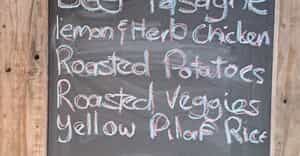 Beef lasagne
lemon & Herb Chicken
Roasted Potatoes
Roasted Veggies
Yellow Pilaf Rice